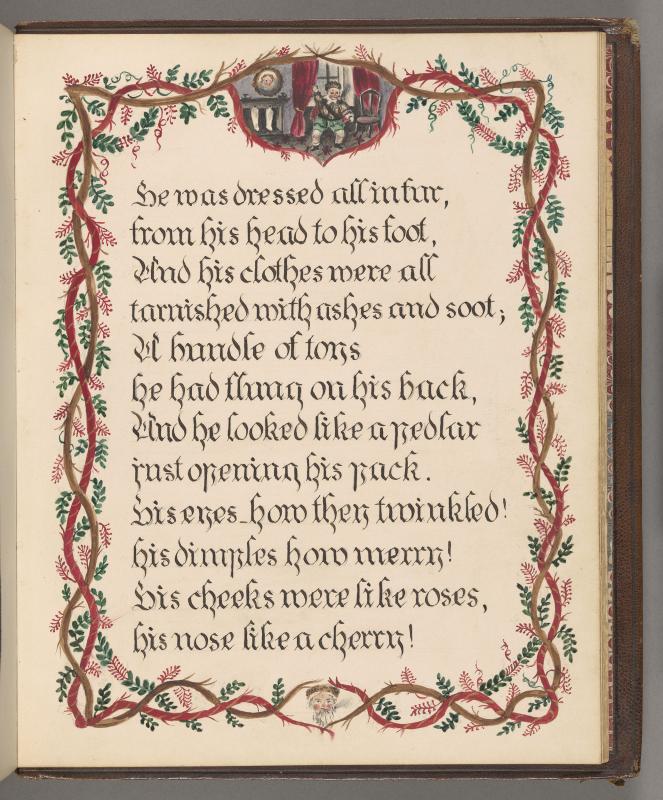 He was dressed all in fur,
from his head to his foot,
And his clothes were all
tarnished with ashes and soot;
A bundle of toys
he had flung on his back,
And he looked like a pedlar
just opening his pack.
His eyes-how they twinkled!
his dimples how merry!
His cheeks were like roses,
his nose like a cherry!